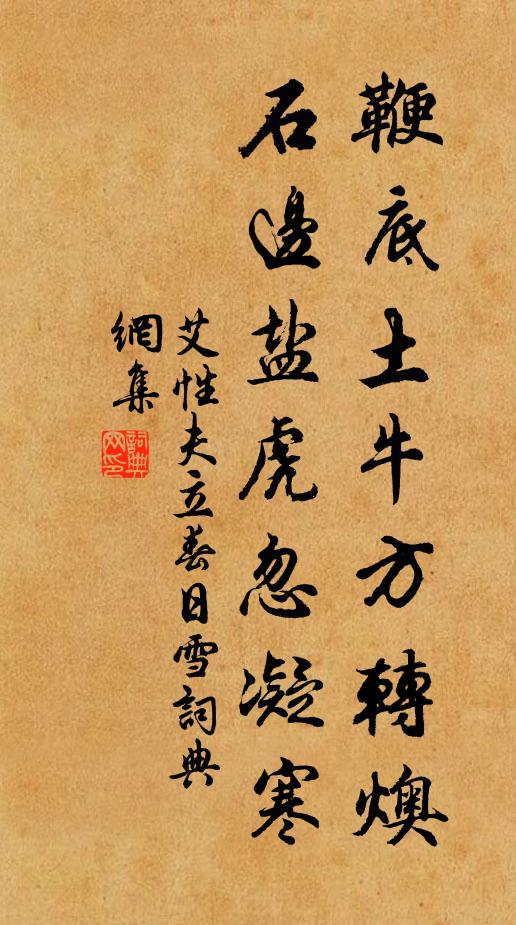 鞭底土牛方轉燠
石邊盐虎忽凝寒
艾性夫立春日雪詞典
網集
詞典
网印